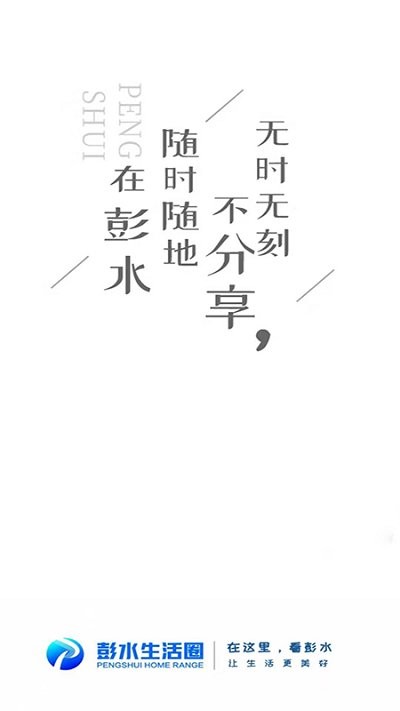 无时无刻
不分享，
随时随地
在彭水
PENG
SHUI
彭水生活圈
PENGSHUI HOME RANGE
在这里，看彭水
让生活更美好